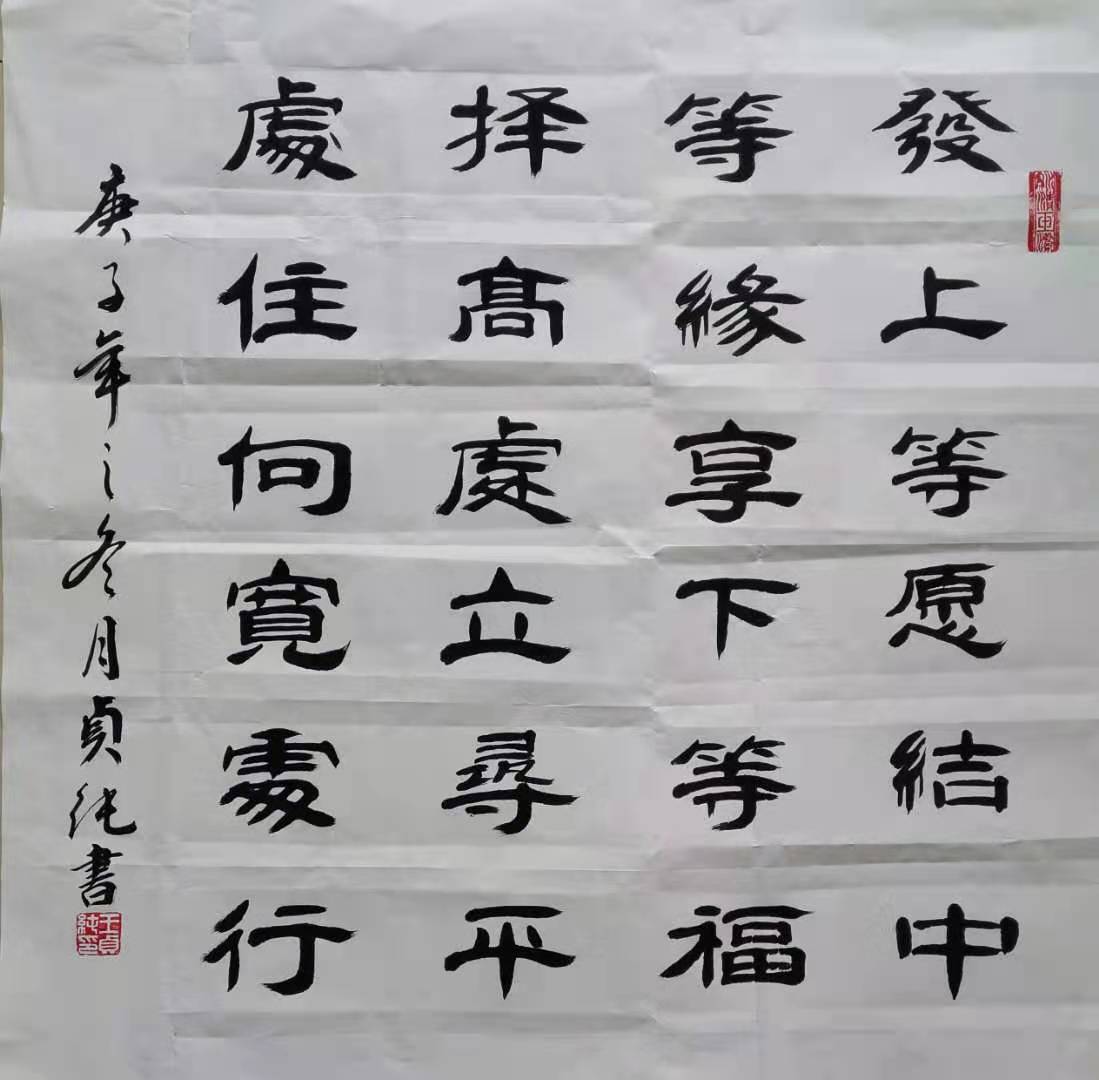 發上等愿結中
等緣享下等福
择髙處立尋平
處住向寬處行
庚子年之冬月貞純書
王貞純印